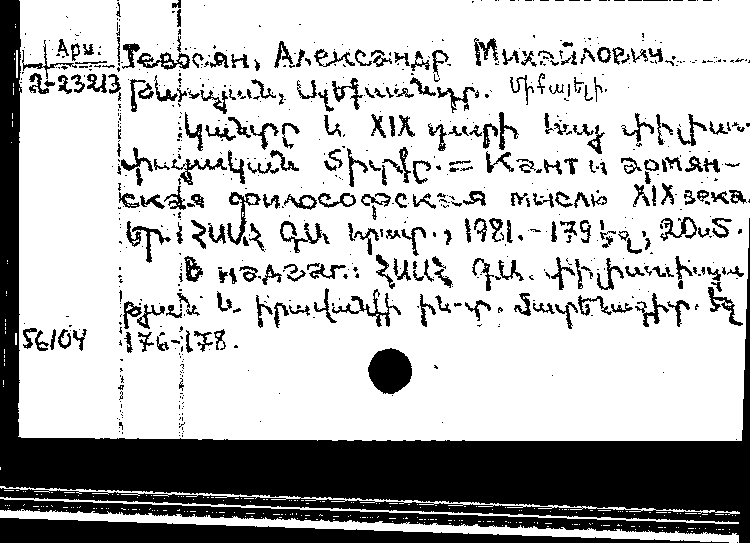 Арм. Тевосян, Александр Михайлович.
2-23213 Թևոսյան, Ալեքսանդր. Միքայելի.
Կանտը և XIX դարի հայ փիլիսո-
փայական միտքը. = Кант и армян-
ская философская мысль XIX века.
Եր.: ՀՍՍՀ ԳԱ հրատ., 1981. - 179 էջ; 20 см.
В надзаг.: ՀՍՍՀ ԳԱ. փիլիսոփայու
թյան և իրավունքի ին-տ. Մատենագիր. էջ
56104 176-178.